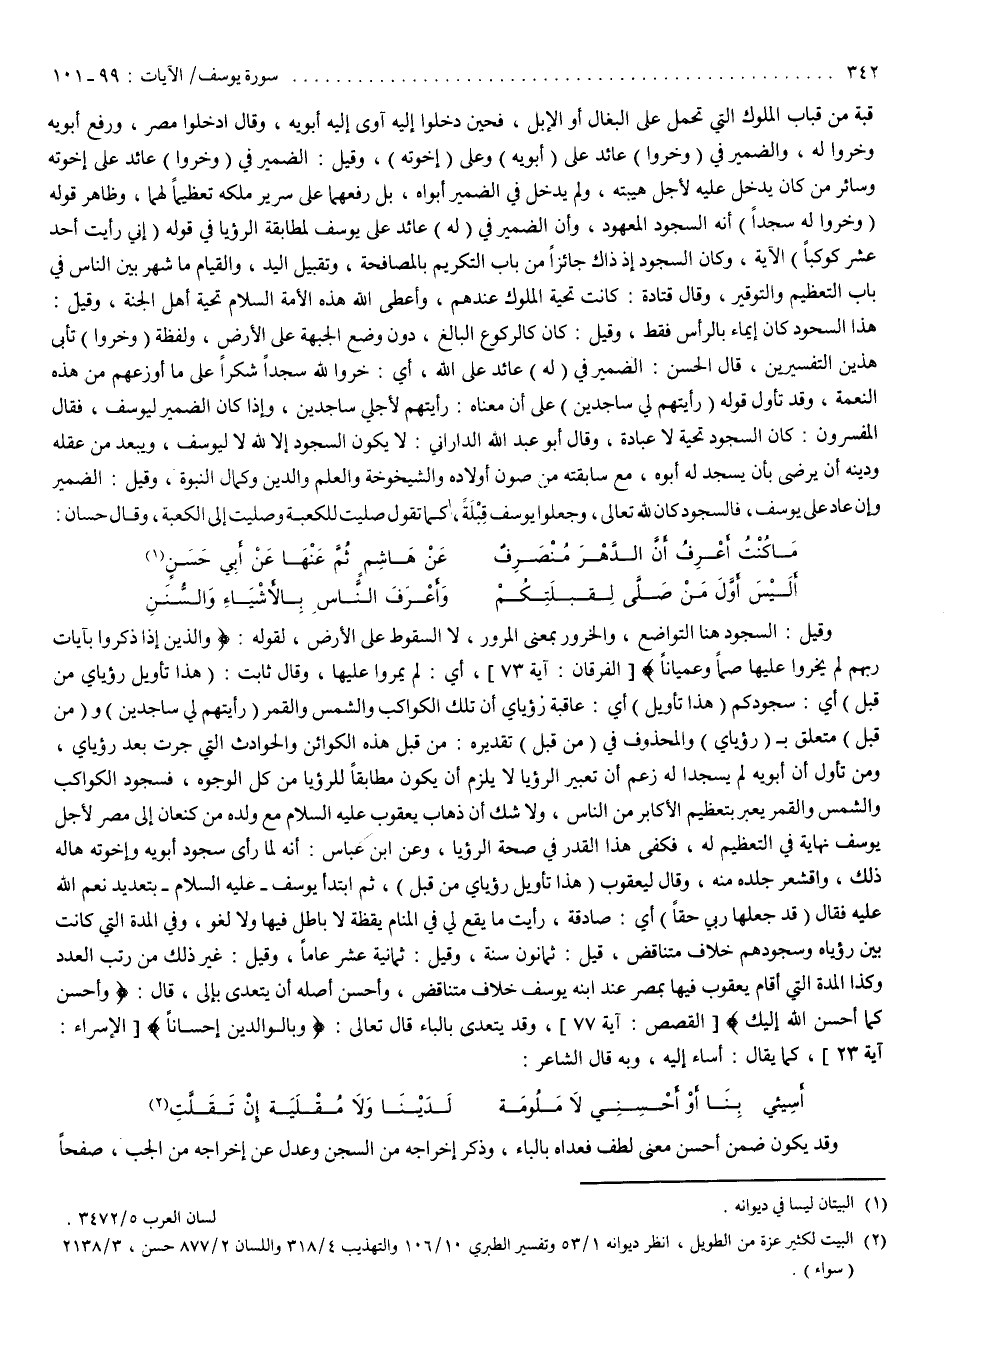 ٣٤٢ ............................................. سورة يوسف/ الآيات : ٩٩ - ١٠١
قبة من قباب الملوك التي تحمل على البغال أو الإبل ، فحين دخلوا إليه آوى إليه أبويه ، وقال ادخلوا مصر ، ورفع أبويه
وخروا له ، والضمير في ( وخروا ) عائد على ( أبويه ) وعلى ( إخوته ) ، وقيل : الضمير في ( وخروا ) عائد على إخوته
وسائر من كان يدخل عليه لأجل هيبته ، ولم يدخل في الضمير أبواه ، بل رفعهما على سرير ملكه تعظيماً لهما ، وظاهر قوله
( وخروا له سجداً ) أنه السجود المعهود ، وأن الضمير في ( له ) عائد على يوسف لمطابقة الرؤيا في قوله ( إني رأيت أحد
عشر كوكباً ) الآية ، وكان السجود إذ ذاك جائزاً من باب التكريم بالمصافحة ، وتقبيل اليد ، والقيام ما شهر بين الناس في
باب التعظيم والتوقير ، وقال قتادة : كانت تحية الملوك عندهم ، وأعطى الله هذه الأمة السلام تحية أهل الجنة ، وقيل :
هذا السجود كان إيماء بالرأس فقط ، وقيل : كان كالركوع البالغ ، دون وضع الجبهة على الأرض ، ولفظة ( وخروا ) تأبى
هذين التفسيرين ، قال الحسن : الضمير في ( له ) عائد على الله ، أي : خروا لله سجداً شكراً على ما أوزعهم من هذه
النعمة ، وقد تأول قوله ( رأيتهم لي ساجدين ) على أن معناه : رأيتهم لأجلي ساجدين ، وإذا كان الضمير ليوسف ، فقال
المفسرون : كان السجود تحية لا عبادة ، وقال أبو عبد الله الداراني : لا يكون السجود إلا لله لا ليوسف ، ويبعد من عقله
ودينه أن يرضى بأن يسجد له أبوه ، مع سابقته من صون أولاده والشيخوخة والعلم والدين وكمال النبوة ، وقيل : الضمير
وإن عاد على يوسف ، فالسجود كان لله تعالى ، وجعلوا يوسف قِبْلَةً ، كما تقول صليت للكعبة وصليت إلى الكعبة ، وقال حسان :
مَا كُنْتُ أَعْرِفُ أَنَّ الدَّهْرَ مُنْصَرِفٌ عَنْ هَاشِمٍ ثُمَّ عَنْهَا عَنْ أَبِي حَسَنٍ(١)
أَلَيْسَ أَوَّلَ مَنْ صَلَّى لِقِبْلَتِكُمْ وَأَعْرَفَ النَّاسِ بِالأَشْيَاءِ وَالسُّنَنِ
وقيل : السجود هنا التواضع ، والخرور بمعنى المرور ، لا السقوط على الأرض ، لقوله : ﴿ والذين إذا ذكروا بآيات
ربهم لم يخروا عليها صماً وعمياناً ﴾ [ الفرقان : آية ٧٣ ] ، أي : لم يمروا عليها ، وقال ثابت : ( هذا تأويل رؤياي من
قبل ) أي : سجودكم ( هذا تأويل ) أي : عاقبة رؤياي أن تلك الكواكب والشمس والقمر ( رأيتهم لي ساجدين ) و ( من
قبل ) متعلق بـ ( رؤياي ) والمحذوف في ( من قبل ) تقديره : من قبل هذه الكوائن والحوادث التي جرت بعد رؤياي ،
ومن تأول أن أبويه لم يسجدا له زعم أن تعبير الرؤيا لا يلزم أن يكون مطابقاً للرؤيا من كل الوجوه ، فسجود الكواكب
والشمس والقمر يعبر بتعظيم الأكابر من الناس ، ولا شك أن ذهاب يعقوب عليه السلام مع ولده من كنعان إلى مصر لأجل
يوسف نهاية في التعظيم له ، فكفى هذا القدر في صحة الرؤيا ، وعن ابن عباس : أنه لما رأى سجود أبويه وإخوته هاله
ذلك ، واقشعر جلده منه ، وقال ليعقوب ( هذا تأويل رؤياي من قبل ) ، ثم ابتدأ يوسف - عليه السلام - بتعديد نعم الله
عليه فقال ( قد جعلها ربي حقاً ) أي : صادقة ، رأيت ما يقع لي في المنام يقظة لا باطل فيها ولا لغو ، وفي المدة التي كانت
بين رؤياه وسجودهم خلاف متناقض ، قيل : ثمانون سنة ، وقيل : ثمانية عشر عاماً ، وقيل : غير ذلك من رتب العدد
وكذا المدة التي أقام يعقوب فيها بمصر عند ابنه يوسف خلاف متناقض ، وأحسن أصله أن يتعدى بإلى ، قال : ﴿ وأحسن
كما أحسن الله إليك ﴾ [ القصص : آية ٧٧ ] ، وقد يتعدى بالباء قال تعالى : ﴿ وبالوالدين إحساناً ﴾ [ الإسراء :
آية ٢٣ ] ، كما يقال : أساء إليه ، وبه قال الشاعر :
أَسِيئي بِنَا أَوْ أَحْسِنِي لاَ مَلُومَةَ لَدَيْنَا وَلاَ مُقْلَيَة إِنْ تَقَلَّتِ(٢)
وقد يكون ضمن أحسن معنى لطف فعداه بالباء ، وذكر إخراجه من السجن وعدل عن إخراجه من الجب ، صفحاً
(١) البيتان ليسا في ديوانه . لسان العرب ٣٤٧٢/٥ .
(٢) البيت لكثير عزة من الطويل ، انظر ديوانه ٥٣/١ وتفسير الطبري ١٠٦/١٠ والتهذيب ٣١٨/٤ واللسان ٨٧٧/٢ حسن ، ٢١٣٨/٣
( سواء ) .